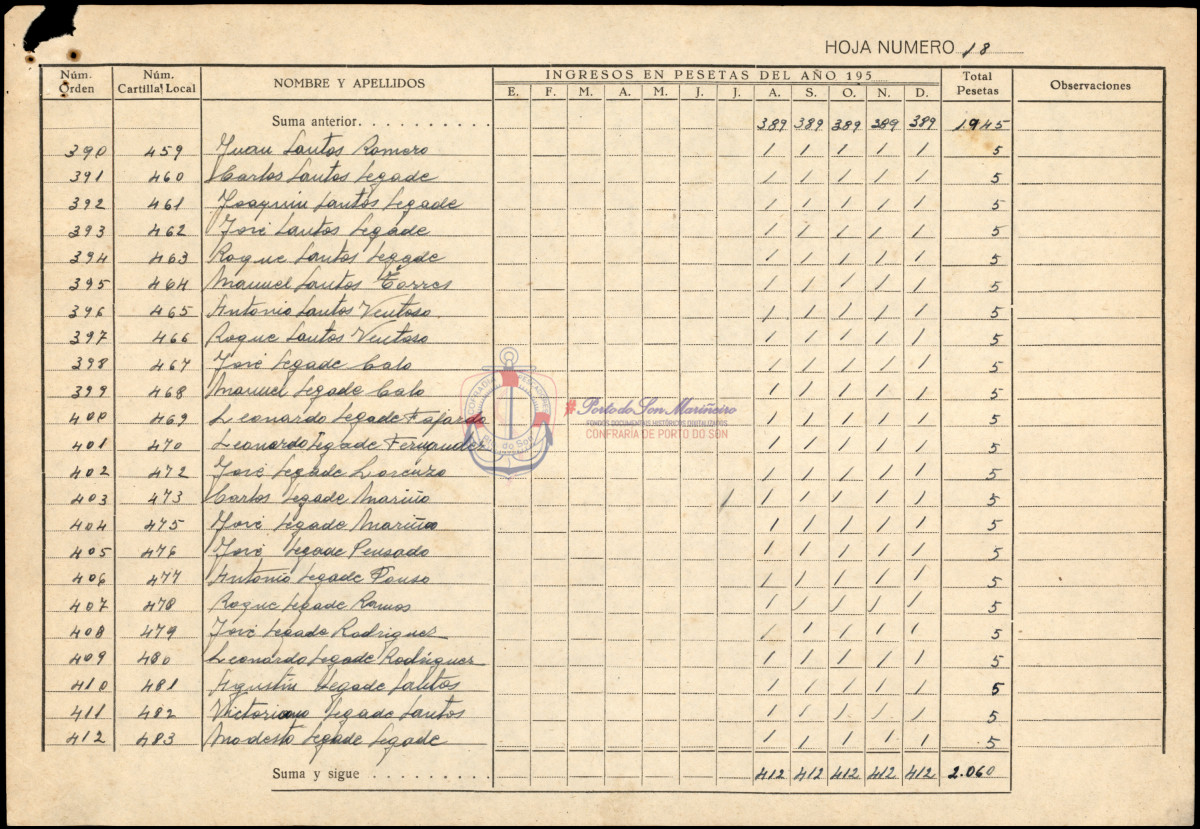 HOJA NUMERO 18
Núm. Orden Núm. Cartilla Local NOMBRE Y APELLIDOS INGRESOS EN PESETAS DEL AÑO 195 Total Pesetas Observaciones
E. F. M. A. M. J. J. A. S. O. N. D.
Suma anterior. . . . . . . . . . . 389 389 389 389 389 1945
390 459 Juan Santos Romero / / / / / 5
391 460 Carlos Santos Segade / / / / / 5
392 461 Joaquin Santos Segade / / / / / 5
393 462 José Santos Segade / / / / / 5
394 463 Roque Santos Segade / / / / / 5
395 464 Manuel Santos Torres / / / / / 5
396 465 Antonio Santos Ventoso / / / / / 5
397 466 Roque Santos Ventoso / / / / / 5
398 467 José Segade Calo / / / / / 5
399 468 Manuel Segade Calo / / / / / 5
400 469 Leonardo Segade Fajardo / / / / / 5
401 470 Leonardo Segade Fernandez / / / / / 5
402 472 José Segade Lorenzo / / / / / 5
403 473 Carlos Segade Mariño / / / / / / 5
404 475 José Segade Mariño / / / / / 5
405 476 José Segade Pensado / / / / / 5
406 477 Antonio Segade Pouso / / / / / 5
407 478 Roque Segade Ramos / / / / / 5
408 479 José Segade Rodriguez / / / / / 5
409 480 Leonardo Segade Rodriguez / / / / / 5
410 481 Agustin Segade Santos / / / / / 5
411 482 Victoriano Segade Santos / / / / / 5
412 483 Modesto Segade Segade / / / / / 5
Suma y sigue . . . . . . . . . . 412 412 412 412 412 2.060
CONFRADIA PESCADORES
Porto do Son
#Porto do Son Mariñeiro
FONDOS DOCUMENTAIS HISTÓRICOS DIGITALIZADOS
CONFRARIA DE PORTO DO SON